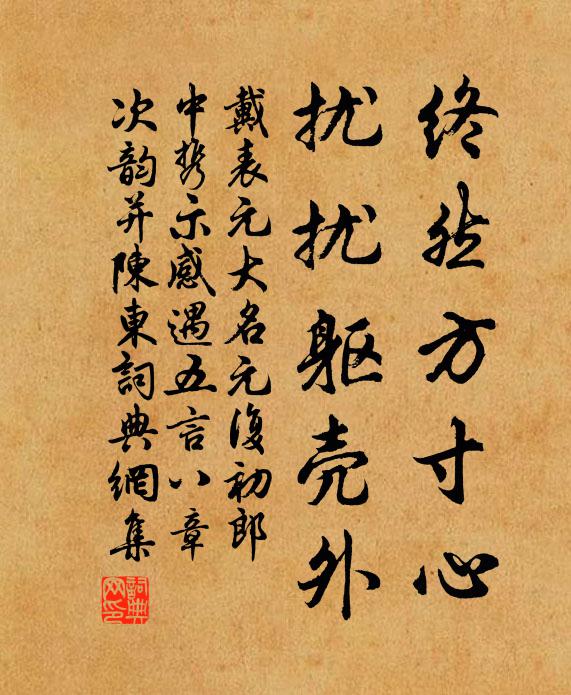 终然方寸心
扰扰躯壳外
戴表元大名元復初郎
中携示感遇五言八章
次韵并陳東詞典網集
詞典网印